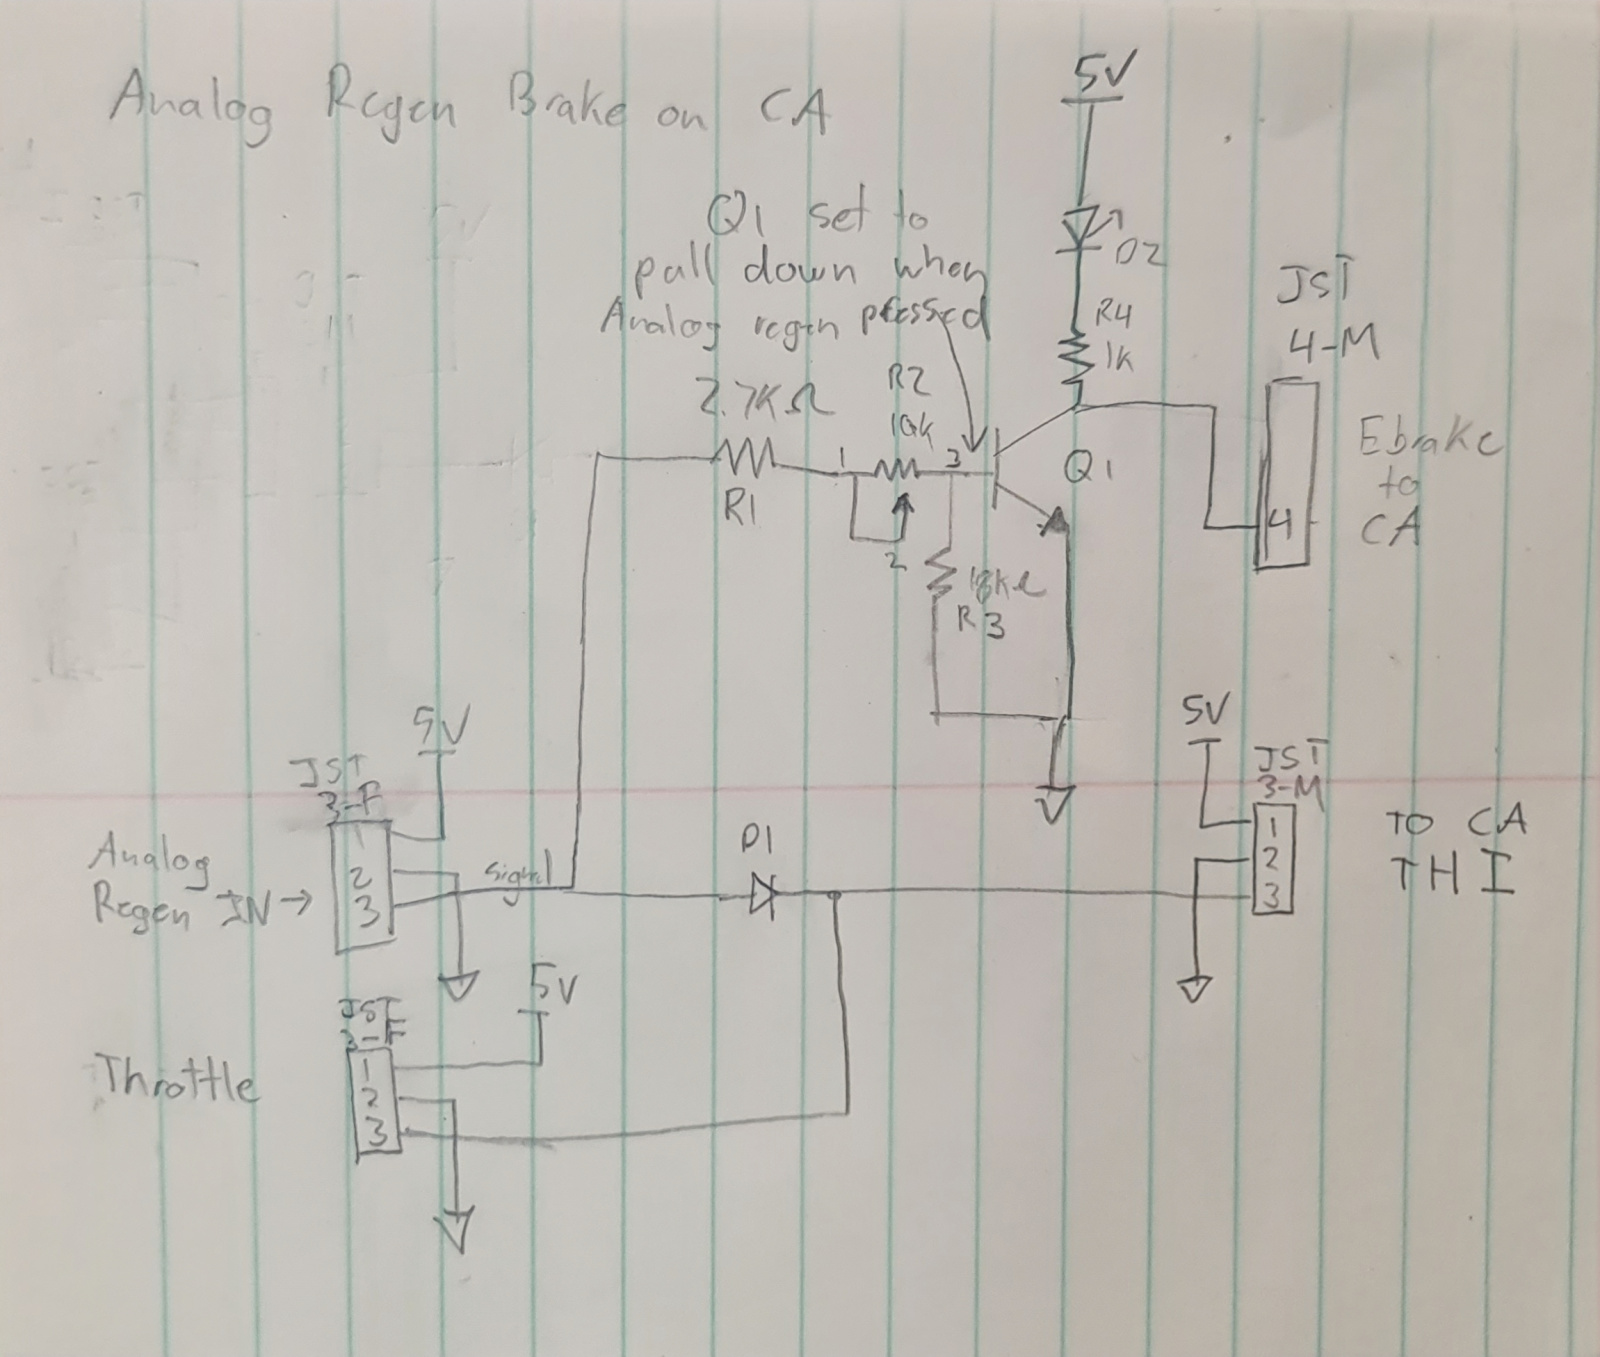 Analog Regen Brake on CA
5V
Q1 set to
pull down when
Analog regen pressed
D2
R4
1K
JST
4-M
2.7KΩ
R2
10k
1
3
2
R1
Q1
4
Ebrake
to
CA
R3
5V
JST
3-F
1
2
3
Analog
Regen IN →
signal
D1
5V
JST
3-M
1
2
3
TO CA
THI
5V
JST
3-F
1
2
3
Throttle